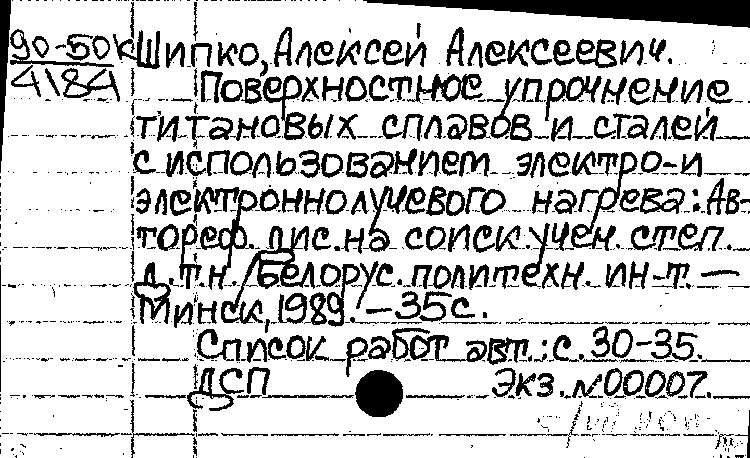 90-50К Шипко, Алексей Алексеевич.
4184 Поверхностное упрочнение
титановых сплавов и сталей
с использованием электро- и
электроннолучевого нагрева: Ав-
тореф. дис. на соиск. учен. степ.
д.т.н. / Белорус. политехн. ин-т. —
Минск, 1989. — 35 с.
Список работ авт.: с. 30-35.
ДСП Экз. №00007.